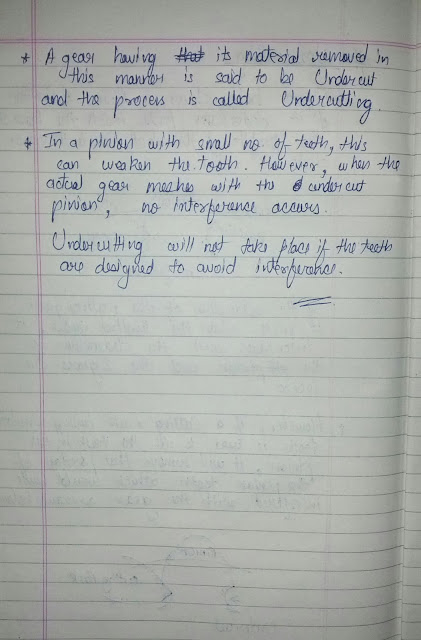 * A gear having its material removed in
this manner is said to be Undercut
and the process is called Undercutting.
* In a pinion with small no. of teeth, this
can weaken the tooth. However, when the
actual gear meshes with the undercut
pinion, no interference occurs.
Undercutting will not take place if the teeth
are designed to avoid interference.